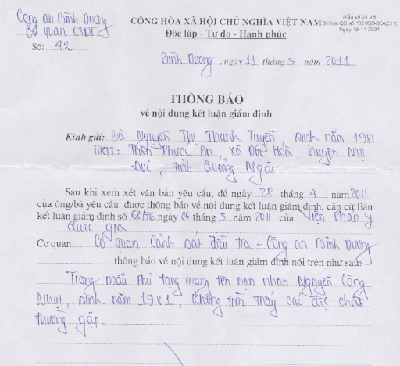 Công an Bình Dương
Cơ quan CSĐT
Số: 42
CỘNG HÒA XÃ HỘI CHỦ NGHĨA VIỆT NAM
Độc lập - Tự do - Hạnh phúc
Bình Dương, ngày 11 tháng 5 năm 2011
THÔNG BÁO
về nội dung kết luận giám định
Kính gửi: Bà Nguyễn Thị Thanh Tuyền sinh năm 1981
Thôn Phước An, xã Đức Hoà, huyện Mộ
Đức, tỉnh Quảng Ngãi
Sau khi xem xét văn bản yêu cầu, đề ngày 28 tháng 4 năm 2011
của ông/bà yêu cầu được thông báo về nội dung kết luận giám định, căn cứ bản
kết luận giám định số ngày 04 tháng 5 năm 2011 của Viện Pháp y
Quốc gia
Cơ quan Cơ quan Cảnh sát điều tra - Công an Bình Dương
thông báo về nội dung kết luận giám định nói trên như sau:
Trong mẫu Phủ tạng mang tên nạn nhân Nguyễn Công
Nhựt, sinh năm 1981, không tìm thấy các độc chất
thường gặp.